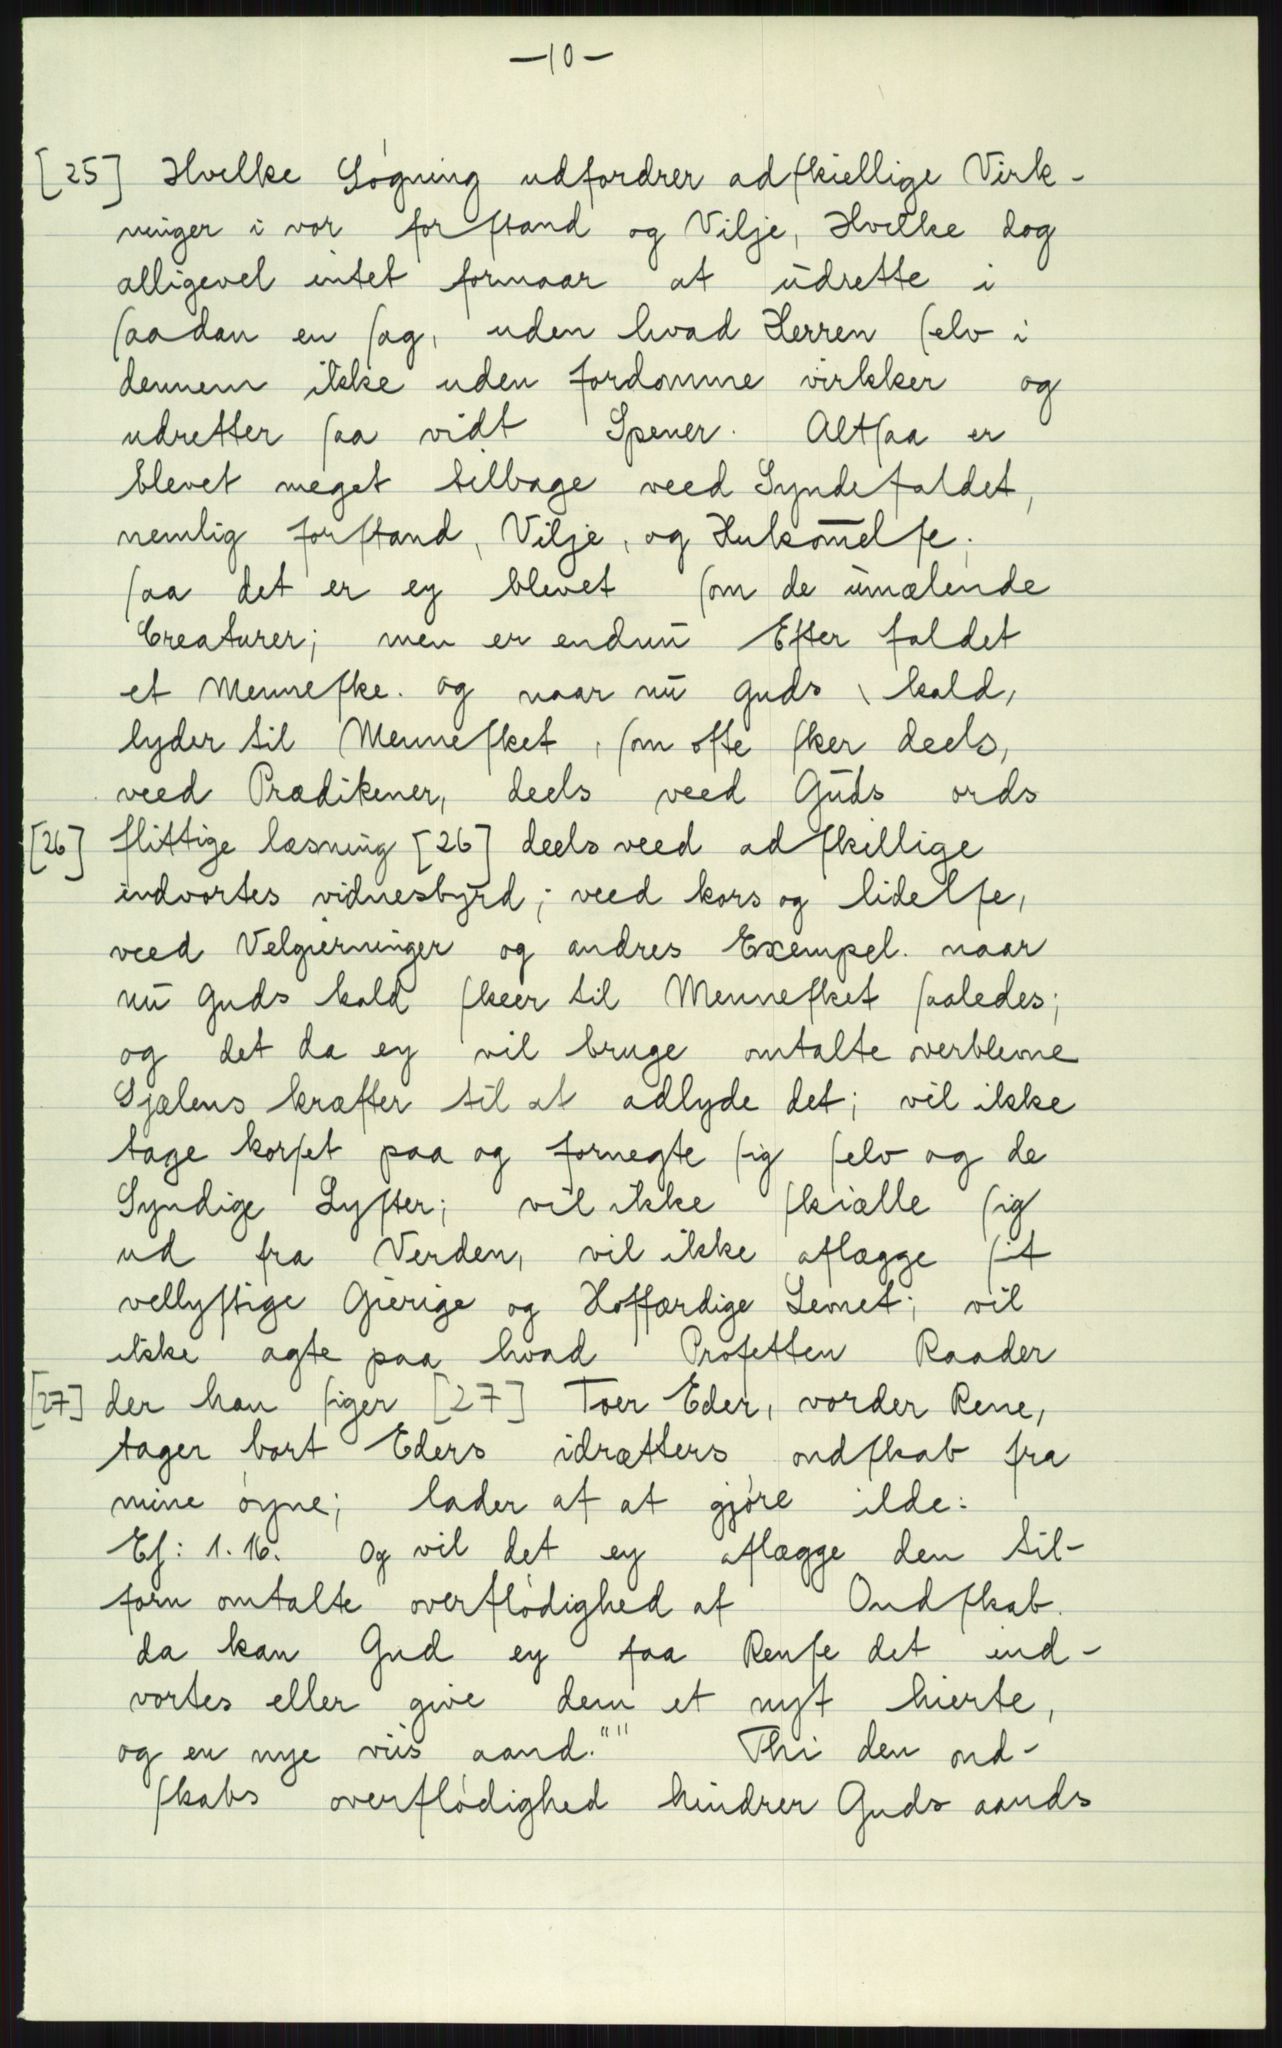 —10—
[25] Hvilke Søgning udfordrer adſkiellige Virk-
ninger i vor forſtand og Vilje, Hvilke dog
alligevel intet formaar at ūdrette i
ſaadan en ſag, uden hvad Herren ſelv i
dennem ikke uden fordomme virkker og
udretter ſaa vidt Spener. Altſaa er
blevet meget tilbage veed Syndefaldet,
nemlig forſtand, Vilje, og Hukom̅elſe.
ſaa det er ey blevet ſom de ūmælende
Creaturer; men er endnū Efter faldet
et Menneſke. og naar nū guds kald,
lyder til Menneſket, ſom ofte ſker deels,
veed Prædikener, deels veed Gūds ords
[26] flittige læsning [26] deels veed adſkillige
indvortes vidnesbÿrd; veed kors og lidelſe,
veed Velgierninger og andres Exempel. naar
nū guds kald ſkeer til Menneſket ſaaledes;
og det da ey vil bruge omtalte overblevne
Sjælens kræfter til at adlyde det; vil ikke
tage korſet paa og fornegte ſig ſelv og de
Syndige Lyſter; vil ikke ſkiælle ſig
ud fra Verden, vil ikke aflægge ſit
vellyſtige Gierige og Hoffærdige Levnet; vil
ikke agte paa hvad Profetten Raader
[27] der han ſiger [27] Toer Eder, vorder Rene,
tager bort Eders idrætters ondſkab fra
mine øyne; lader af at gjøre ilde:
Eſ: 1. 16. Og vil det ey aflægge den til-
forn omtalte overflødighed af Ondſkab.
da kan Gud ey faa Renſe det ind-
vortes eller give dem et nyt hierte,
og en nye viis aand."" Thi den ond-
ſkabs overflødighed hindrer Guds aands